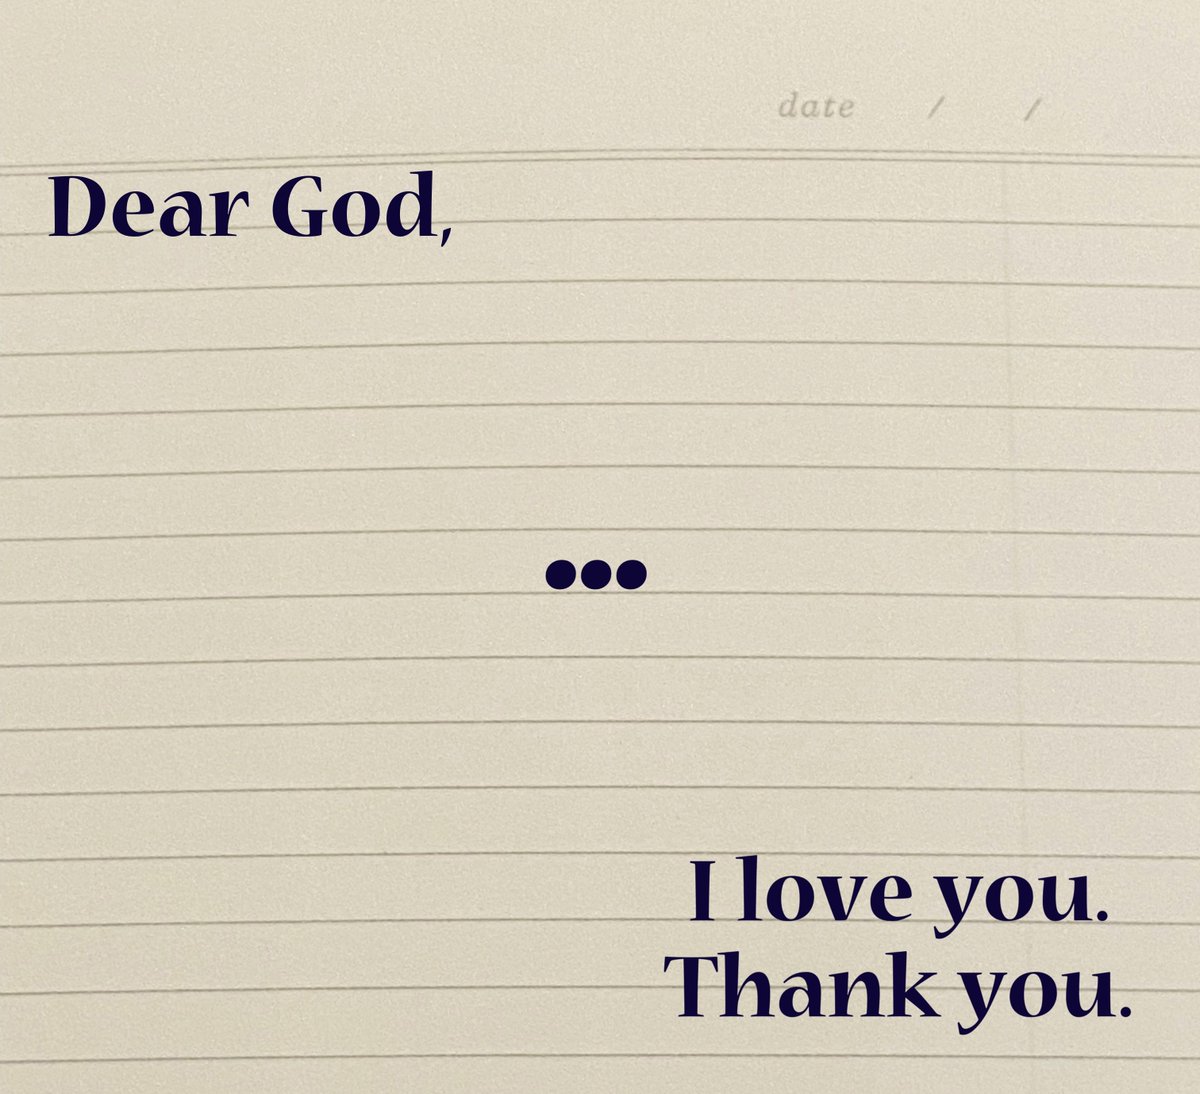 date / /
Dear God,
•••
I love you.
Thank you.